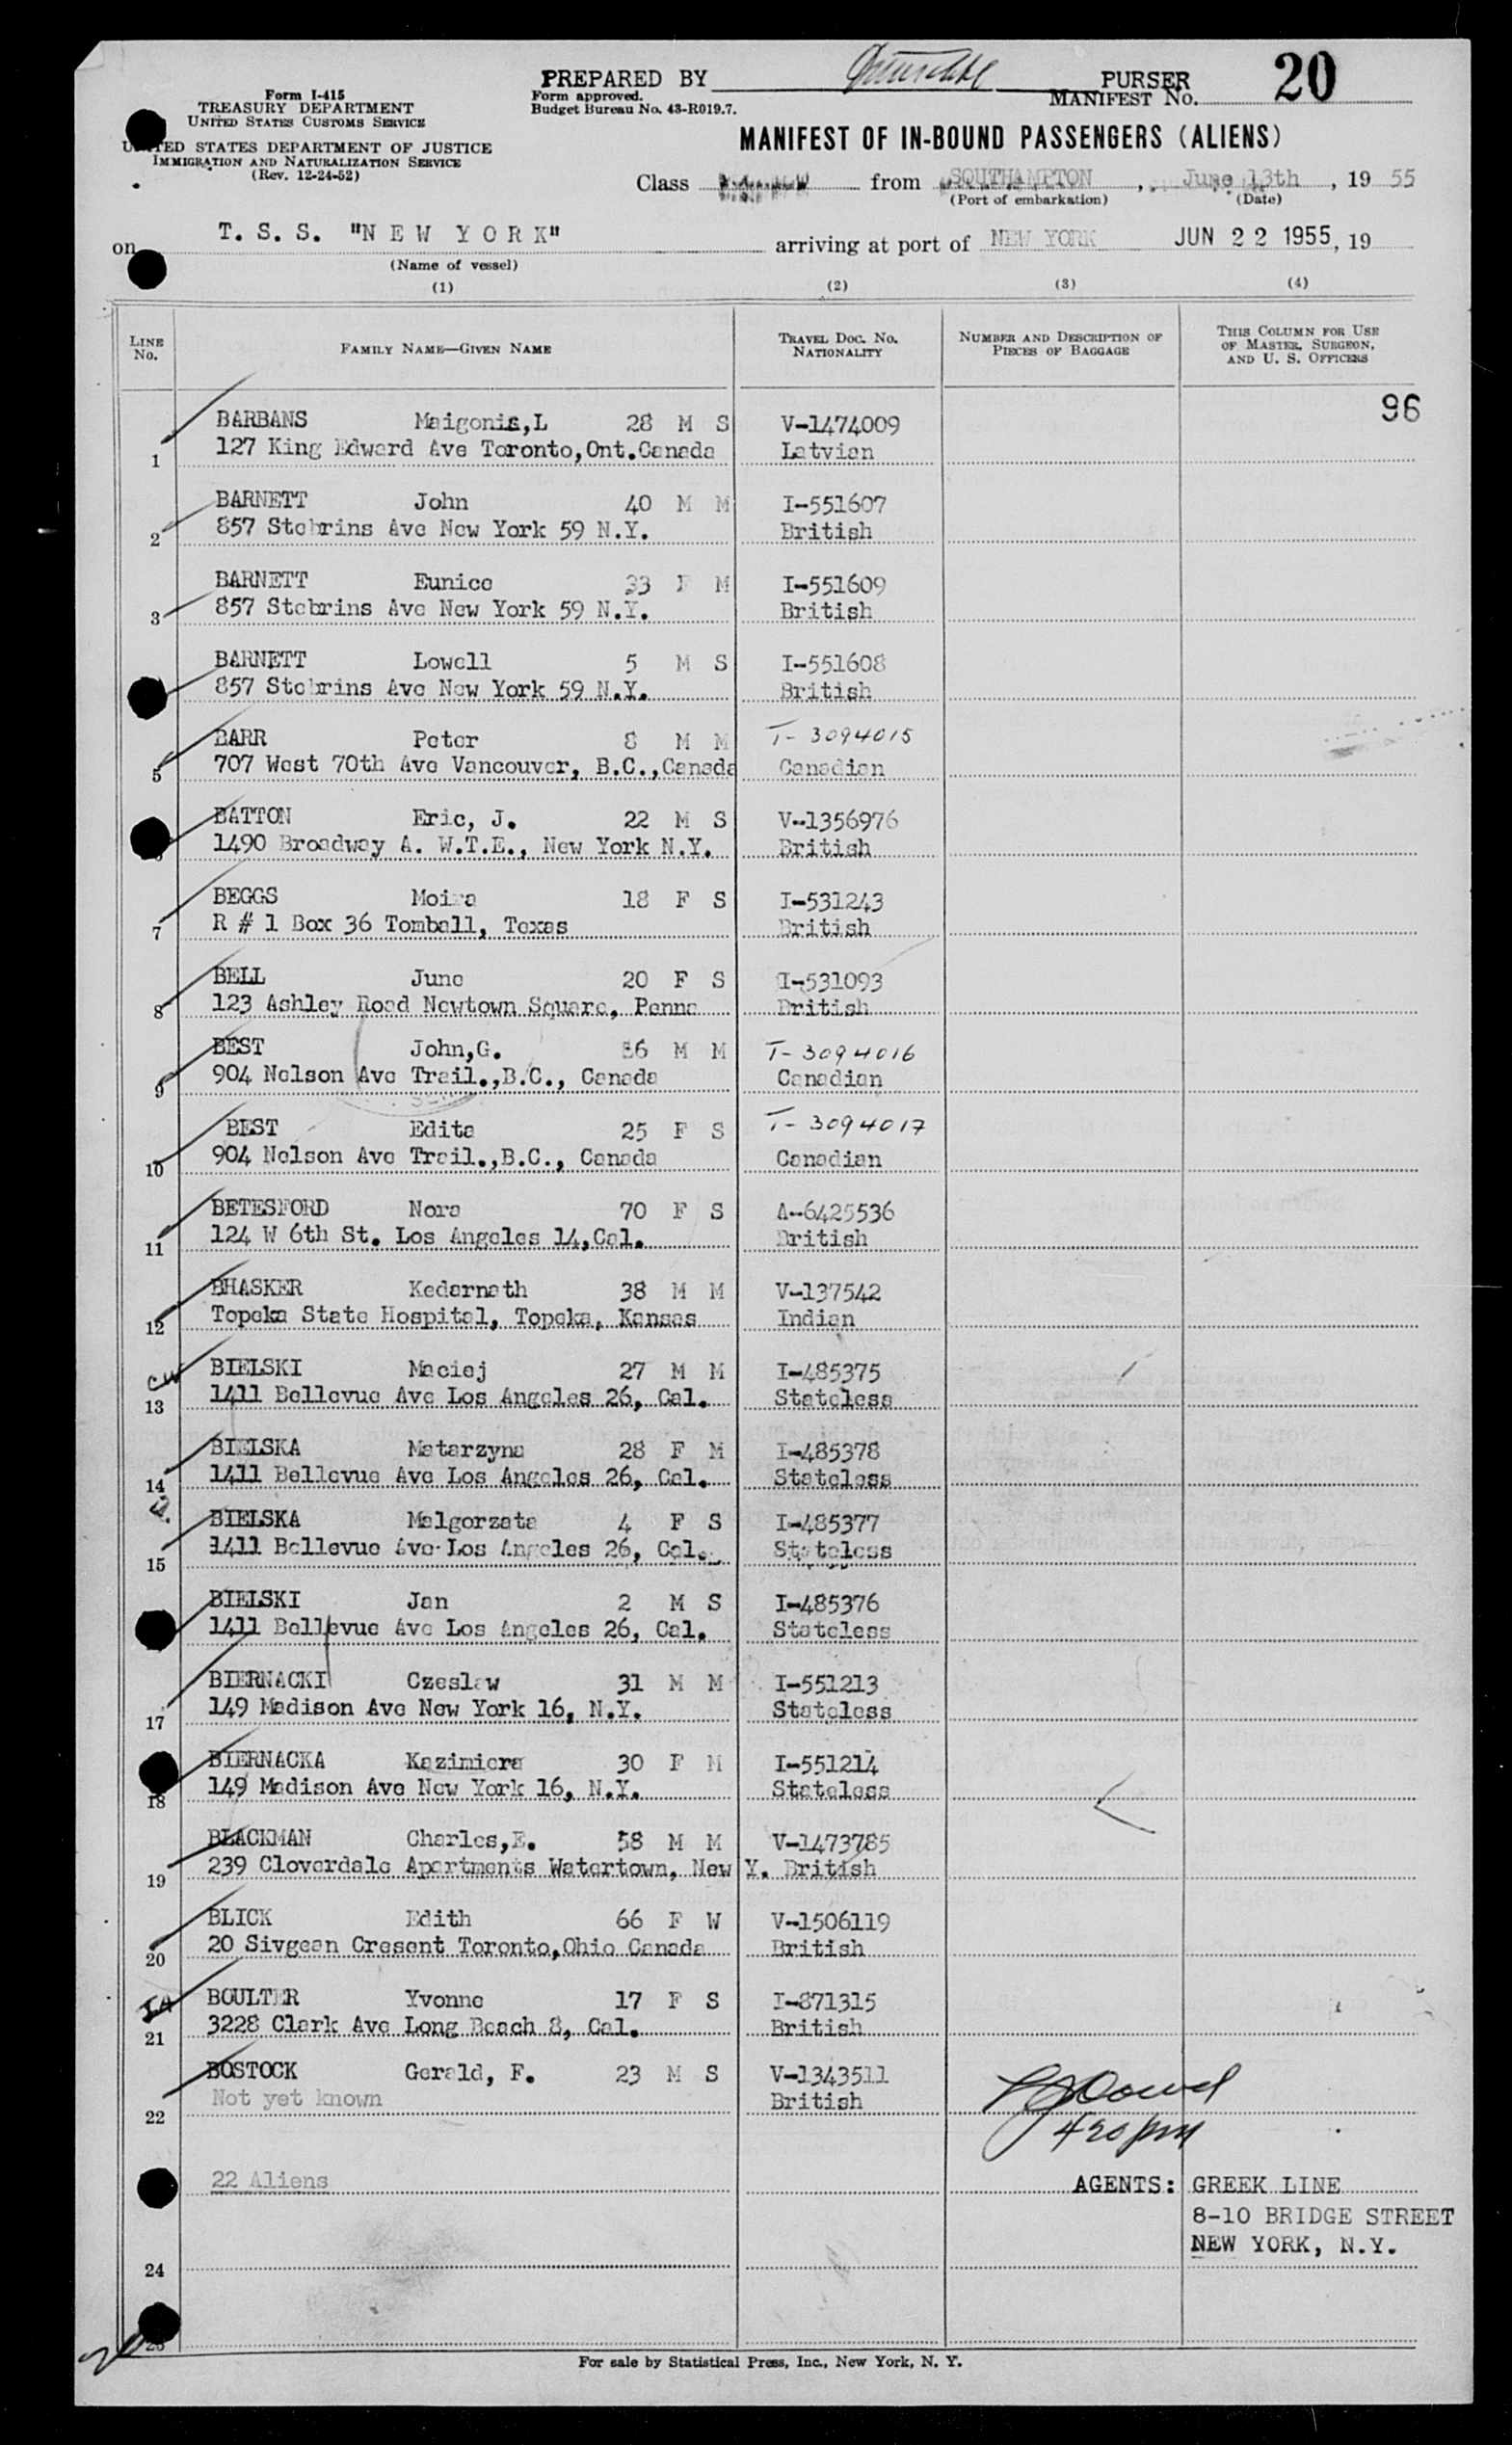 Form I-415
TREASURY DEPARTMENT
UNITED STATES CUSTOMS SERVICE
UNITED STATES DEPARTMENT OF JUSTICE
IMMIGRATION AND NATURALIZATION SERVICE
(Rev. 12-24-52)
PREPARED BY PURSER
Form approved.
Budget Bureau No. 43-R019.7.
MANIFEST No. 20
MANIFEST OF IN-BOUND PASSENGERS (ALIENS)
Class from SOUTHAMPTON, June 13th, 19 55
(Port of embarkation) (Date)
on T. S. S. "N E W Y O R K" arriving at port of NEW YORK JUN 2 2 1955, 19
(Name of vessel)
(1) (2) (3) (4)
LINE No.
FAMILY NAME—GIVEN NAME
TRAVEL DOC. NO. NATIONALITY
NUMBER AND DESCRIPTION OF PIECES OF BAGGAGE
THIS COLUMN FOR USE OF MASTER, SURGEON, AND U. S. OFFICERS
96
BARBANS Maigonis,L 28 M S V-1474009
1 127 King Edward Ave Toronto,Ont.Canada Latvian
BARNETT John 40 M M I-551607
2 857 Stebrins Ave New York 59 N.Y. British
BARNETT Eunice 33 F M I-551609
3 857 Stebrins Ave New York 59 N.Y. British
BARNETT Lowell 5 M S I-551608
857 Stebrins Ave New York 59 N.Y. British
BARR Peter 8 M M T-3094015
5 707 West 70th Ave Vancouver, B.C.,Canada Canadian
BATTON Eric, J. 22 M S V-1356976
1490 Broadway A. W.T.E., New York N.Y. British
BEGGS Moira 18 F S I-531243
7 R # 1 Box 36 Tomball, Texas British
BELL June 20 F S I-531093
8 123 Ashley Road Newtown Square, Penna British
BEST John,G. 36 M M T-3094016
9 904 Nelson Ave Trail.,B.C., Canada Canadian
BEST Edita 25 F S T-3094017
10 904 Nelson Ave Trail.,B.C., Canada Canadian
BETESFORD Nora 70 F S A-6425536
11 124 W 6th St. Los Angeles 14,Cal. British
BHASKER Kedarnath 38 M M V-137542
12 Topeka State Hospital, Topeka, Kansas Indian
BIELSKI Maciej 27 M M I-485375
13 1411 Bellevue Ave Los Angeles 26, Cal. Stateless
BIELSKA Matarzyna 28 F M I-485378
14 1411 Bellevue Ave Los Angeles 26, Cal. Stateless
BIELSKA Malgorzata 4 F S I-485377
15 1411 Bellevue Ave Los Angeles 26, Cal. Stateless
BIELSKI Jan 2 M S I-485376
1411 Bellevue Ave Los Angeles 26, Cal. Stateless
BIERNACKI Czeslaw 31 M M I-551213
17 149 Madison Ave New York 16, N.Y. Stateless
BIERNACKA Kazimiera 30 F M I-551214
18 149 Madison Ave New York 16, N.Y. Stateless
BLACKMAN Charles,E. 58 M M V-1473785
19 239 Cloverdale Apartments Watertown, New Y. British
BLICK Edith 66 F W V-1506119
20 20 Sivgean Cresent Toronto,Ohio Canada British
BOULTER Yvonne 17 F S I-871315
21 3228 Clark Ave Long Beach 8, Cal. British
BOSTOCK Gerald, F. 23 M S V-1343511
22 Not yet known British
420 pm
22 Aliens
AGENTS: GREEK LINE
8-10 BRIDGE STREET
NEW YORK, N.Y.
24
25
For sale by Statistical Press, Inc., New York, N. Y.